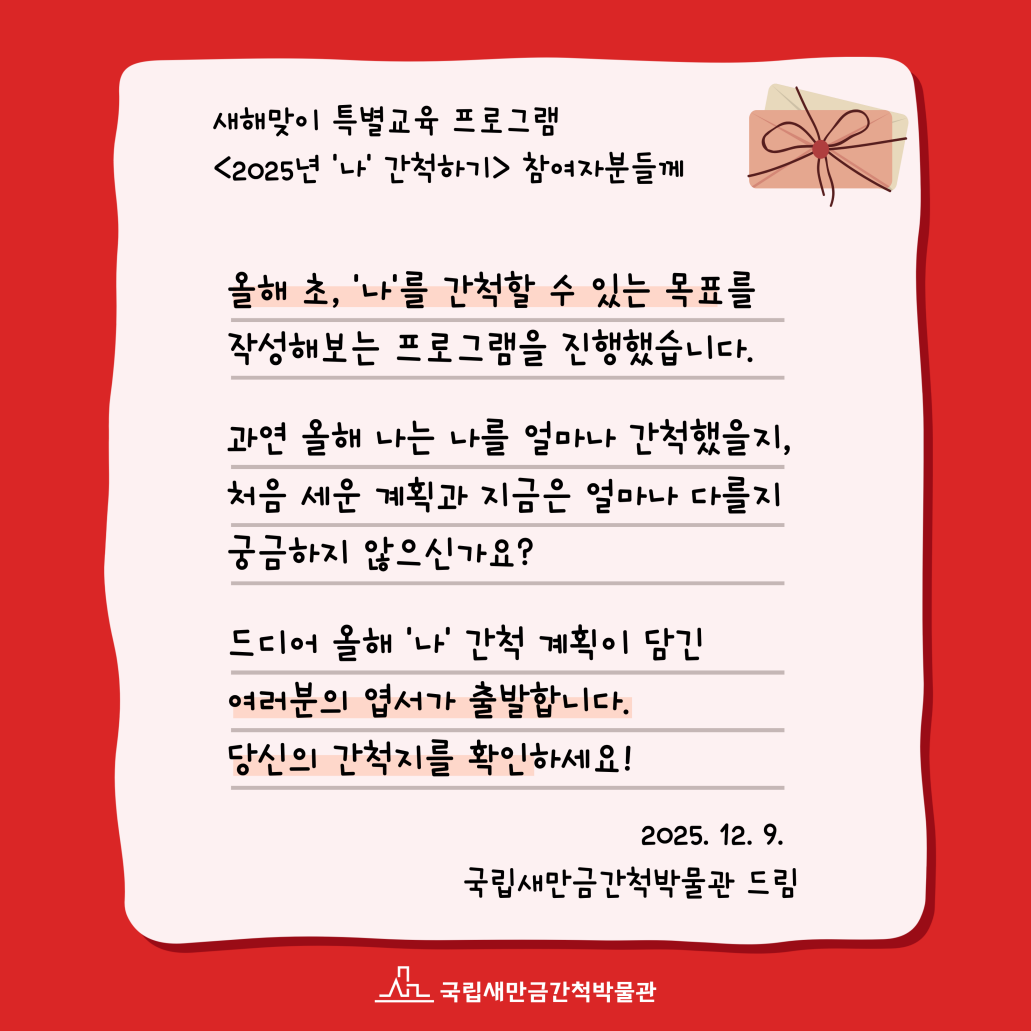 새해맞이 특별교육 프로그램
<2025년 '나' 간척하기> 참여자분들께
올해 초, '나'를 간척할 수 있는 목표를
작성해보는 프로그램을 진행했습니다.
과연 올해 나는 나를 얼마나 간척했을지,
처음 세운 계획과 지금은 얼마나 다를지
궁금하지 않으신가요?
드디어 올해 '나' 간척 계획이 담긴
여러분의 엽서가 출발합니다.
당신의 간척지를 확인하세요!
2025. 12. 9.
국립새만금간척박물관 드림
국립새만금간척박물관